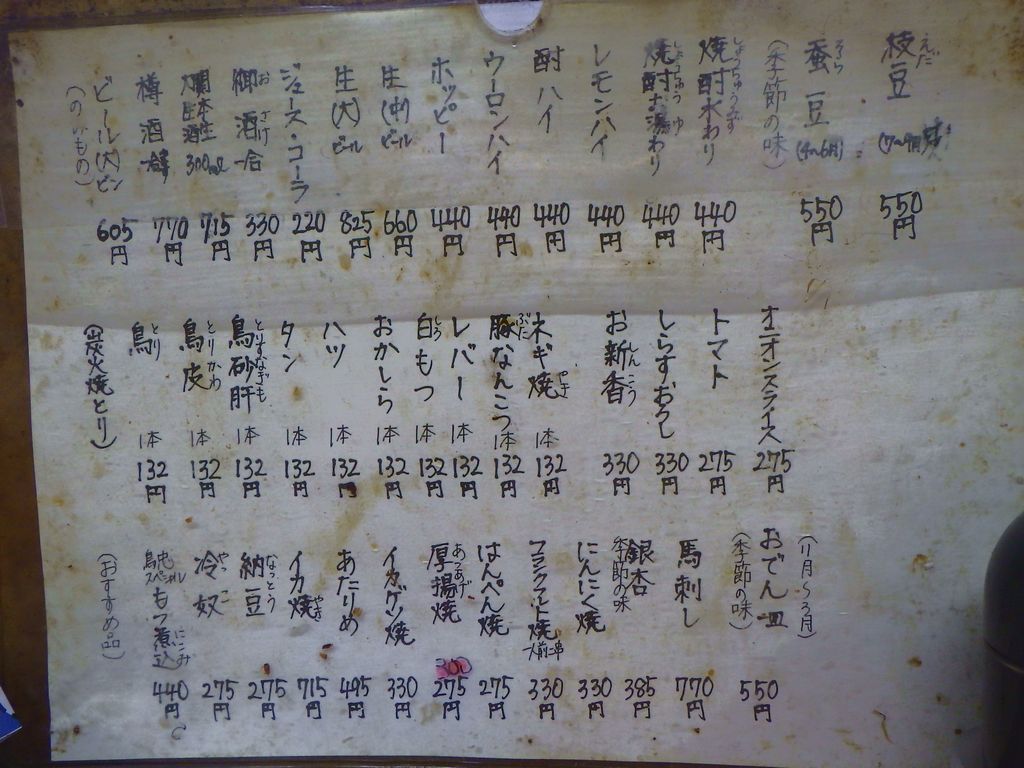 枝豆 (7〜9月) 550円
えだ
蚕豆 (4〜6月) 550円
そら
(季節の味)
焼酎水わり 440円
しょうちゅうみず
焼酎お湯わり 440円
しょうちゅう ゆ
レモンハイ 440円
酎ハイ 440円
ウーロンハイ 440円
ホッピー 440円
生(中)ビール 660円
生(大)ビール 825円
ジュース・コーラ 220円
御酒 一合 330円
お ざけ
300ml 715円
樽酒 770円
ビール(大)ビン 605円
(のみもの)
オニオンスライス 275円
トマト 275円
しらすおろし 330円
お新香 330円
しんこう
ネギ焼 1本 132円
やき
豚なんこつ 1本 132円
ぶた
レバー 1本 132円
白もつ 1本 132円
しろ
おかしら 1本 132円
ハツ 1本 132円
タン 1本 132円
鳥砂肝 1本 132円
とりすなぎも
鳥皮 1本 132円
とりかわ
鳥 1本 132円
とり
(炭火焼とり)
(11月〜3月)
おでん一皿 550円
(季節の味)
馬刺し 770円
銀杏 385円
季節の味
にんにく焼 330円
フランクフルト焼 一人前二串 330円
はんぺん焼 275円
厚揚焼 300 275円
あつあげ
イカゲソ焼 330円
あたりめ 495円
イカ焼 715円
やき
納豆 275円
なっとう
冷奴 275円
やっこ
鳥忠スペシャル もつ煮込 440円
にこみ
(おすすめ品)